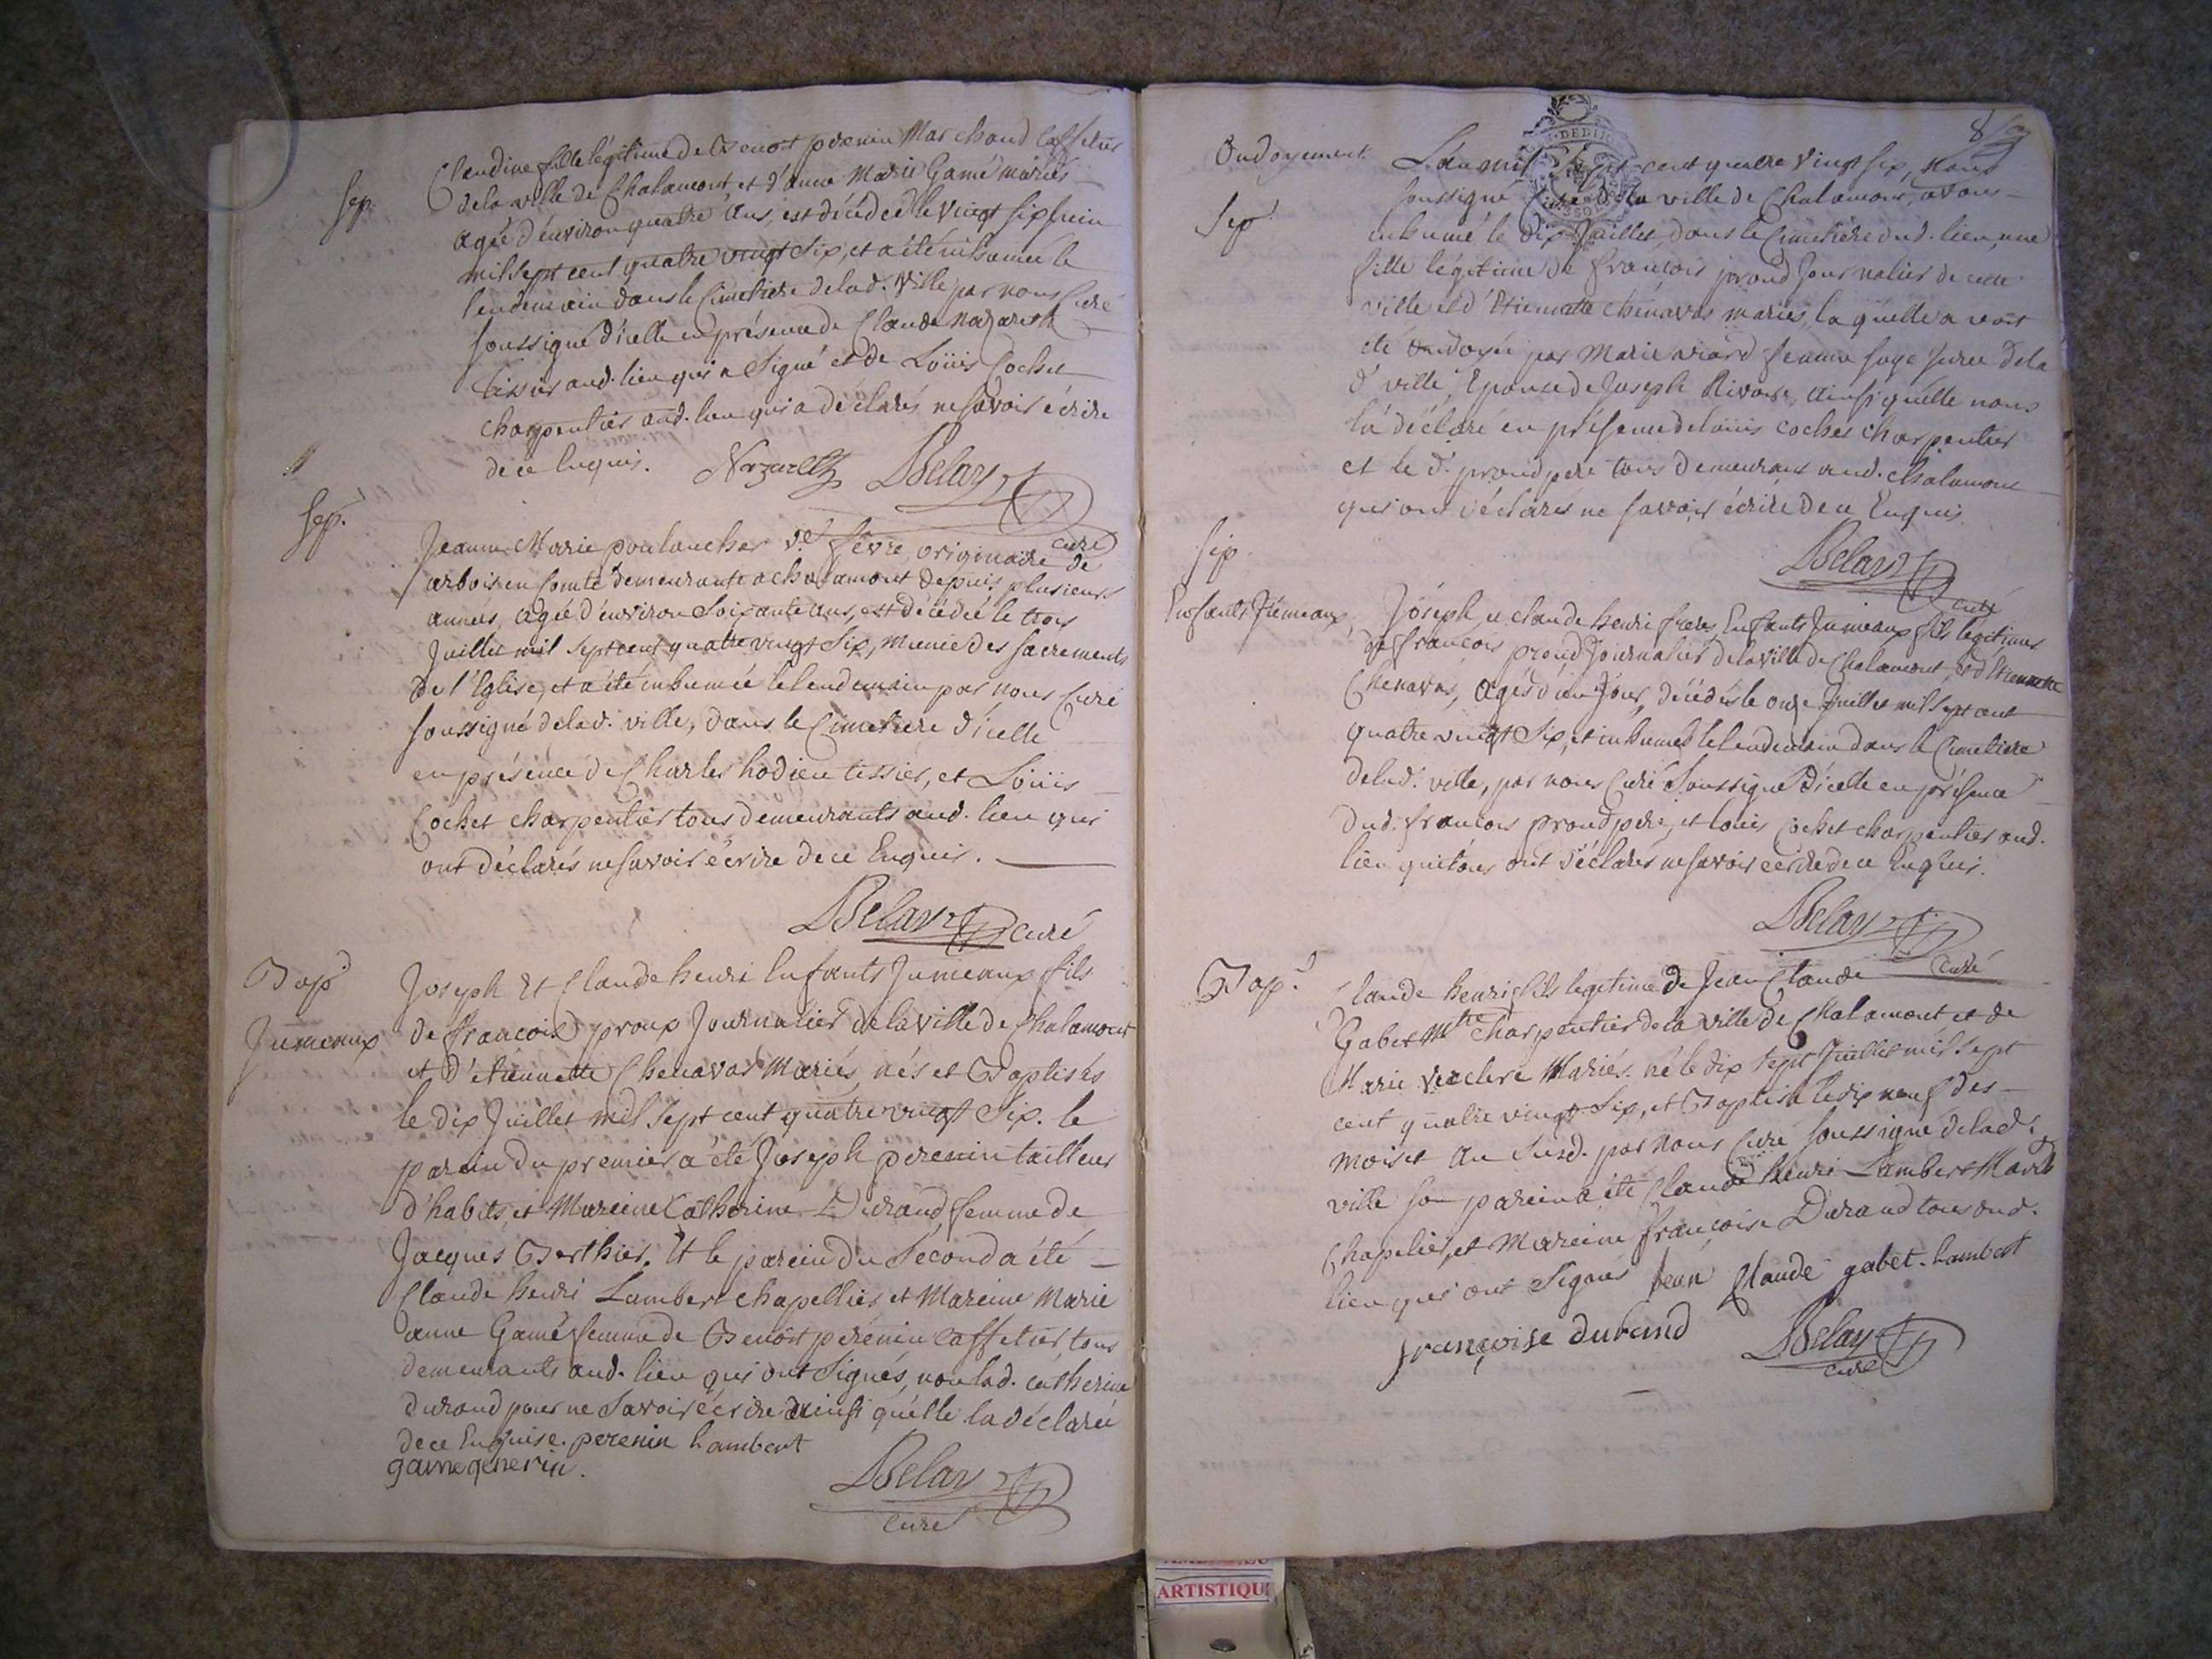 Sep.
Claudine fille légitime de Benoît perenin Marchand Caffetier
de la ville de Chalamont et d'anne Marie Gamé mariés
agée d'environ quatre ans, est décédée le vingt six juin
mil sept cent quatre vingt Six, et a été inhumée le
lendemain dans le Cimetiere de lad. ville par nous Curé
soussigné d'icelle en présence de Claude Nazareth
tissier aud. lieu qui a Signé et de Loüis Cochet
charpentier aud. lieu qui a déclarés ne savoir écrire
de ce Enquis. Nazareth Belay
curé
Sep.
Jeanne Marie poulancher Ve. fevre, originaire de
arbois en Comté demeurante a chalamont depuis plusieurs
années, agée d'environ Soixante ans, est décédée le trois
Juillet mil sept cent quatre vingt Six, munie des sacrements
de l'Eglise, et a été inhumée le lendemain par nous Curé
soussigné de lad. ville, dans le Cimetiere d'icelle
en présence de Charles hodieu tissier, et Loüis
Cochet charpentier tous demeurants aud. lieu qui
ont déclarés ne savoir écrire de ce Enquis.
Belay curé
Bap.
Jumeaux
Joseph Et Claude henri Enfants Jumeaux fils
de françois proux Journalier de la ville de Chalamont
et d'étiennette Chenavas Mariés, nés et Baptisés
le dix Juillet mil sept cent quatre vingt Six. le
parein du premier a été Joseph perenin tailleur
d'habits, et Mareine Catherine Durand, femme de
Jacques Berthier. Et le parein du Second a été
Claude henri Lambert chapellier, et Mareine Marie
anne Gamé femme de Benoît perenin Caffetier, tous
demeurants aud. lieu qui ont Signés, non lad. catherine
durand pour ne Savoir écrire ainsi qu'elle la déclarée
de ce Enquise. perenin Lambert
game
Belay
curé
8
Ondoyement.
Sep.
L'an mil Sept cent quatre vingt six, Nous
soussigné Curé de la ville de Chalamont, avons
inhumé le dix Juillet, dans le Cimetiere dud. lieu, une
fille légitime de françois proud Journalier de cette
ville et d'Etiennette Chenavas mariés, laquelle avoit
été ondoyée par Marie viard femme sage Jurée de la
d. ville, Epouse de Joseph Rivoire, ainsi qu'elle nous
la déclaré en présence de loüis cochet charpentier
et le d. proud pere tous demeurans aud. chalamont
qui ont déclarés ne savoir écrire de ce Enquis.
Belay
curé
Sep.
Enfants Jumeaux
Joseph, et claude henri freres, Enfants Jumeaux fils légitimes
de françois proud Journalier de la ville de Chalamont, et d'Etiennette
Chenavas, agés d'un Jour, décédés le onze Juillet mil sept cent
quatre vingt Six, et inhumés le lendemain dans le Cimetiere
de lad. ville, par nous Curé Soussigné d'icelle en présence
dud. françois proud pere, et louis Cochet charpentier aud.
lieu qui tous ont déclarés ne savoir écrire de ce Enquis.
Belay
curé
Bap.
Claude henri fils legitime de Jean Claude
Gabet Mtre charpentier de la ville de Chalamont et de
Marie Mariés. né le dix Sept Juillet mil sept
cent quatre vingt Six, et Baptisé le dix neuf des
mois et an susd. par nous Curé soussigné de lad.
ville son parein a été Claude Henri Lambert Mard
Chapelier, et Mareine françoise Durand tous aud.
lieu qui ont Signés Jean Claude gabet. Lambert
françoise durand Belay
curé
ARTISTIQU